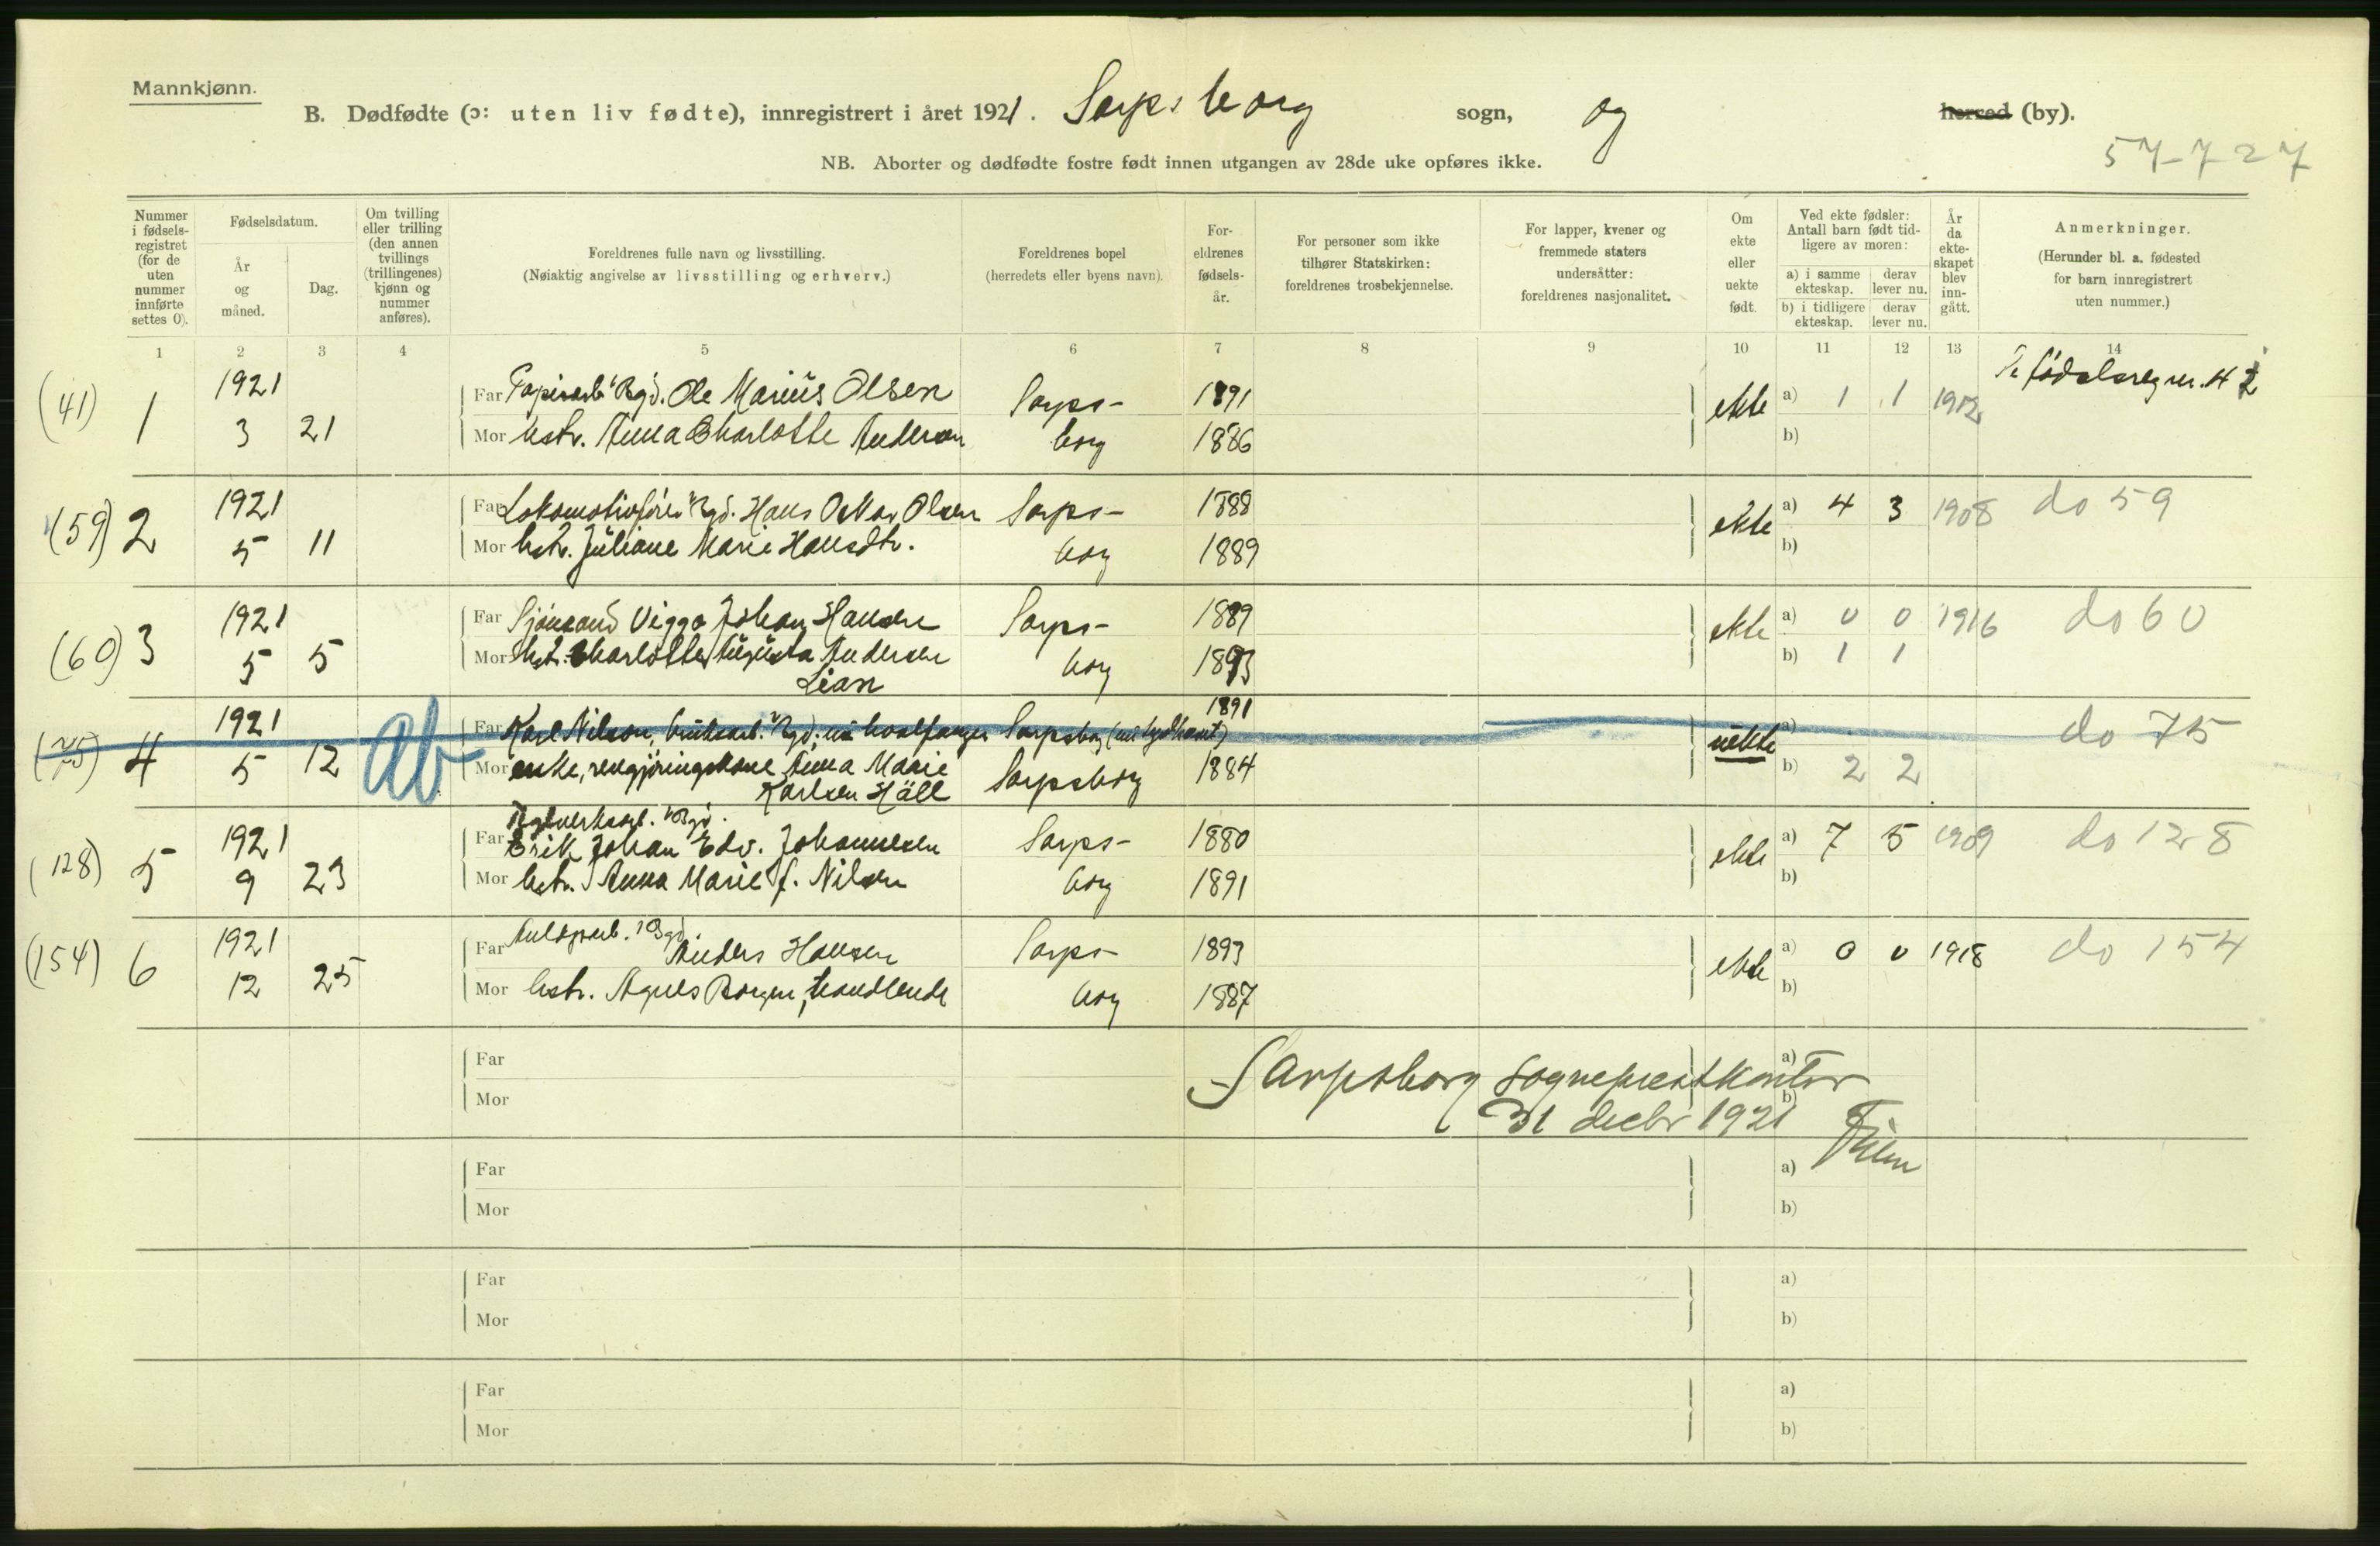 Mannkjønn.
B. Dødfødte (ɔ: uten liv fødte), innregistrert i året 1921. Sarpsborg sogn, og herred (by).
57-727
NB. Aborter og dødfødte fostre født innen utgangen av 28de uke opføres ikke.
Nummer i fødselsregistret (for de uten nummer innførte settes 0).
Fødselsdatum.
År og måned.
Dag.
Om tvilling eller trilling (den annen tvillings (trillingenes) kjønn og nummer anføres).
Foreldrenes fulle navn og livsstilling.
(Nøiaktig angivelse av livsstilling og erhverv.)
Foreldrenes bopel
(herredets eller byens navn).
Foreldrenes fødselsår.
For personer som ikke tilhører Statskirken: foreldrenes trosbekjennelse.
For lapper, kvener og fremmede staters undersåtter: foreldrenes nasjonalitet.
Om ekte eller uekte født.
Ved ekte fødsler: Antall barn født tidligere av moren:
a) i samme ekteskap. derav lever nu.
b) i tidligere ekteskap. derav lever nu.
År da ekteskapet blev inngått.
Anmerkninger.
(Herunder bl. a. fødested for barn innregistrert uten nummer.)
1 2 3 4 5 6 7 8 9 10 11 12 13 14
(41) 1 1921 Far Papirarb. Bgd. Ole Marius Olsen Sarps- 1891 ekte a) 1 1 1912 fødselsreg nr. 42
3 21 Mor hstr. Anna Charlotte Andersen borg 1886 b)
(59) 2 1921 Far Lokomotivfører Bgd. Hans Oskar Olsen Sarps- 1888 ekte a) 4 3 1908 do 59
5 11 Mor hstr. Juliane Marie Hansdtr. borg 1889 b)
(60) 3 1921 Far Sjømand Viggo Johan Hansen Sarps- 1889 ekte a) 0 0 1916 do 60
5 5 Mor hstr. Charlotte Augusta Andersen borg 1893 b) 1 1
Lian
(75) 4 1921 Ab Far Karl Nilsen, bruksarb. Bgd. nu hvalfanger Sarpsborg 1891 uekte a) do 75
5 12 Mor enke, rengjøringskone Anna Marie Sarpsborg 1884 b) 2 2
Karlsen Häll
(128) 5 1921 Far Erik Johan Edv. Johannesen Sarps- 1880 ekte a) 7 5 1909 do 128
9 23 Mor hstr. Anna Marie f. Nilsen borg 1891 b)
(154) 6 1921 Far Bgd. Anders Hansen Sarps- 1893 ekte a) 0 0 1918 do 154
12 25 Mor hstr. Agnes Borgen, handlende borg 1887 b)
Far a)
Sarpsborg sogneprestkontor
Mor b)
31 decbr 1921
Far a)
Mor b)
Far a)
Mor b)
Far a)
Mor b)